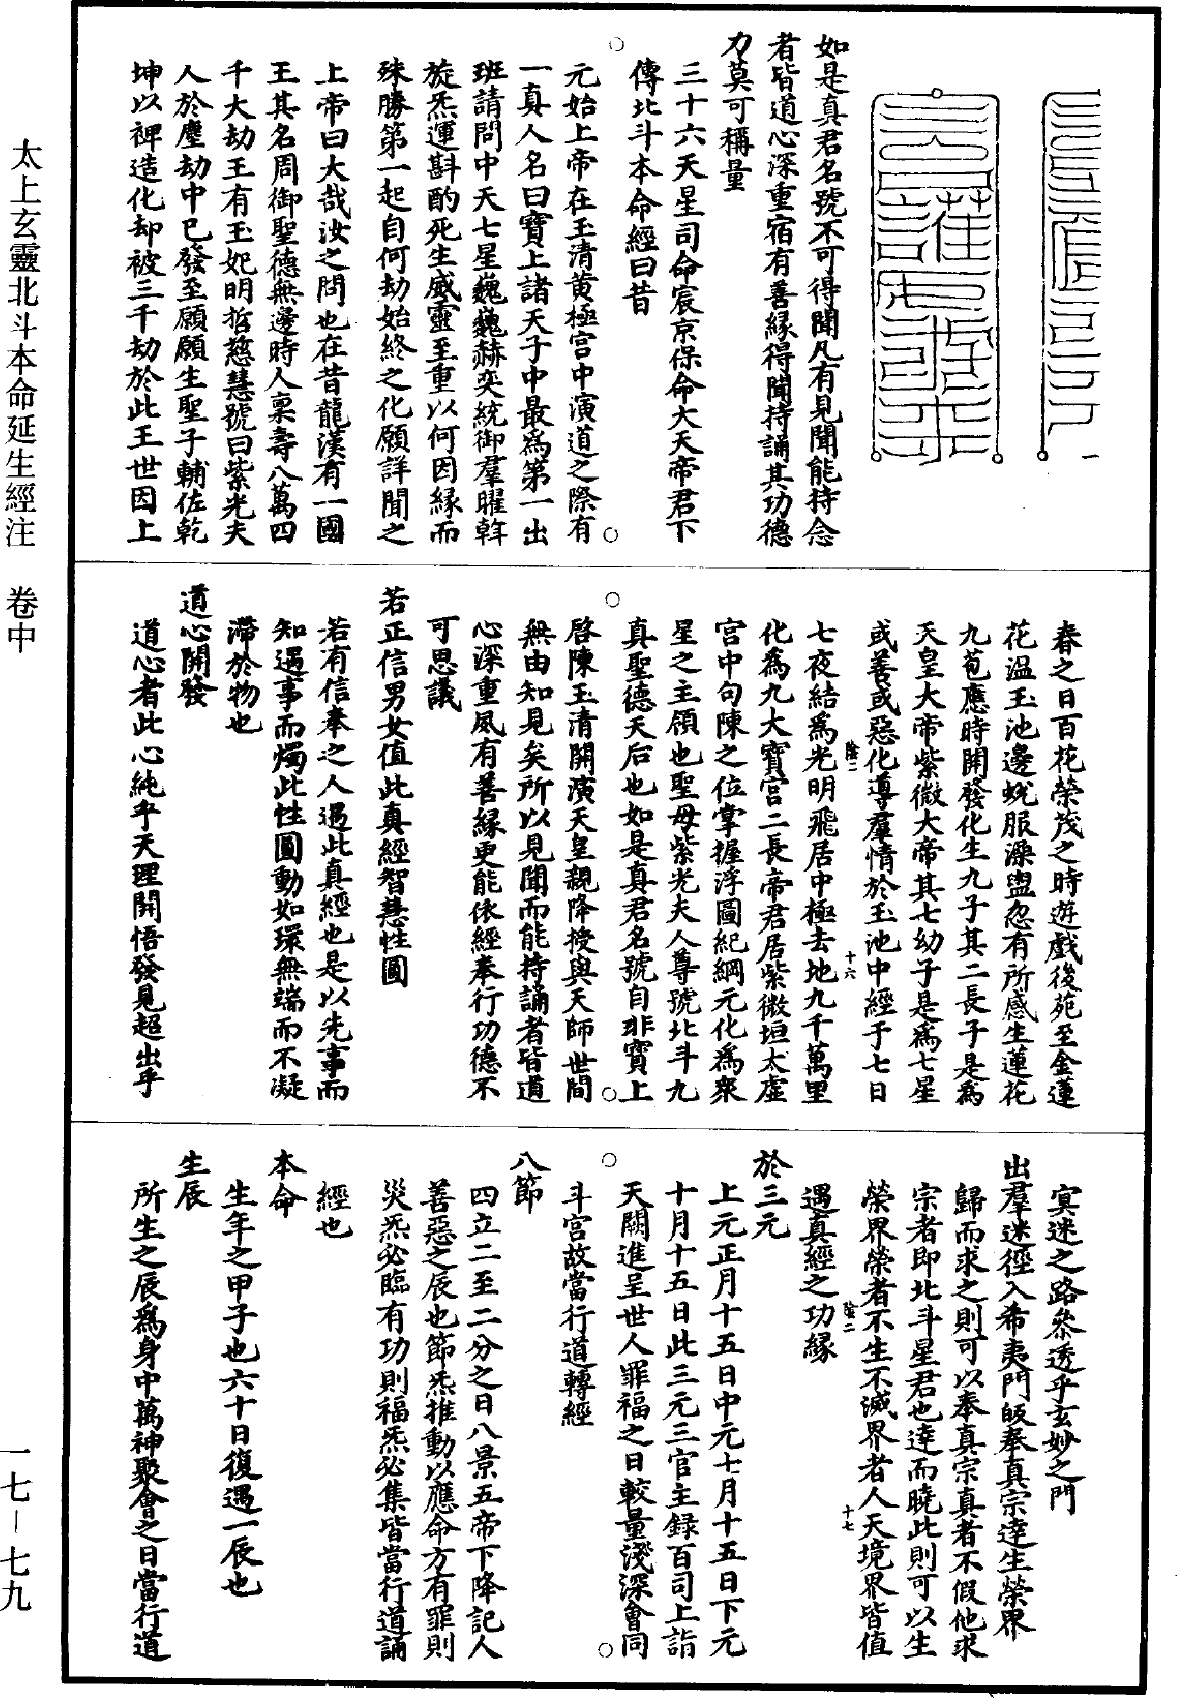 如是真君名號不可得聞凡有見聞能持念
者皆道心深重宿有善緣得聞持誦其功德
力莫可稱量
三十六天星司命宸京保命大天帝君下
傳北斗本命經曰昔
元始上帝在玉清黄極宫中演道之際有
一真人名曰寶上諸天子中最為第一出
班請問中天七星巍巍赫奕統御羣曜斡
旋炁運斟酌死生威靈至重以何因緣而
殊勝第一起自何劫始終之化願詳聞之
上帝曰大哉汝之問也在昔龍漢有一國
王其名周御聖德無邊時人禀壽八萬四
千大劫王有玉妃明哲慈慧號曰紫光夫
人於塵劫中已發至願願生聖子輔佐乾
坤以裨造化却被三千劫於此王世因上
春之日百花榮茂之時遊戲後苑至金蓮
花温玉池邊蜕服澡盥忽有所感生蓮花
九苞應時開發化生九子其二長子是為
天皇大帝紫微大帝其七幼子是為七星
或善或惡化導羣情於玉池中經于七日
陰二 十六
七夜結為光明飛居中極去地九千萬里
化為九大寶宫二長帝君居紫微垣太虛
宫中句陳之位掌握浮圖紀綱元化為衆
星之主領也聖母紫光夫人尊號北斗九
真聖德天后也如是真君名號自非寶上
啓陳玉清開演天皇親降授與天師世間
無由知見矣所以見聞而能持誦者皆道
心深重夙有善緣更能依經奉行功德不
可思議
若正信男女值此真經智慧性圓
若有信奉之人遇此真經也是以先事而
知遇事而燭此性圓動如環無端而不凝
滯於物也
道心開發
道心者此心純乎天理開悟發見超出乎
冥迷之路叅透乎玄妙之門
出羣迷徑入希夷門皈奉真宗達生榮界
歸而求之則可以奉真宗真者不假他求
宗者即北斗星君也達而曉此則可以生
榮界榮者不生不滅界者人天境界皆值
陰二 十七
遇真經之功緣
於三元
上元正月十五日中元七月十五日下元
十月十五日此三元三官主録百司上詣
天闕進呈世人罪福之日較量淺深會同
斗宫故當行道轉經
八節
四立二至二分之日八景五帝下降記人
善惡之辰也節炁推動以應命方有罪則
災炁必臨有功則福炁必集皆當行道誦
經也
本命
生年之甲子也六十日復遇一辰也
生辰
所生之辰為身中萬神聚會之日當行道
太上玄靈北斗本命延生經注 卷中
一七－七九